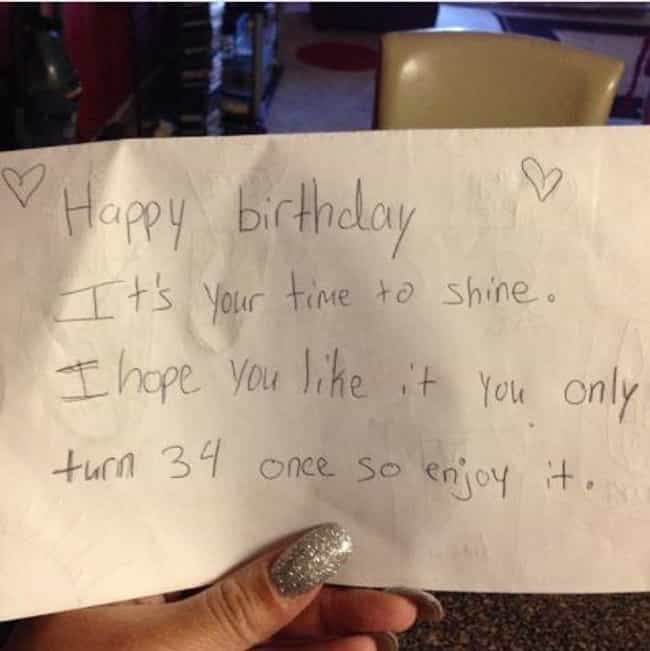 Happy birthday
It's your time to shine.
I hope you like it you only
turn 34 once so enjoy it.